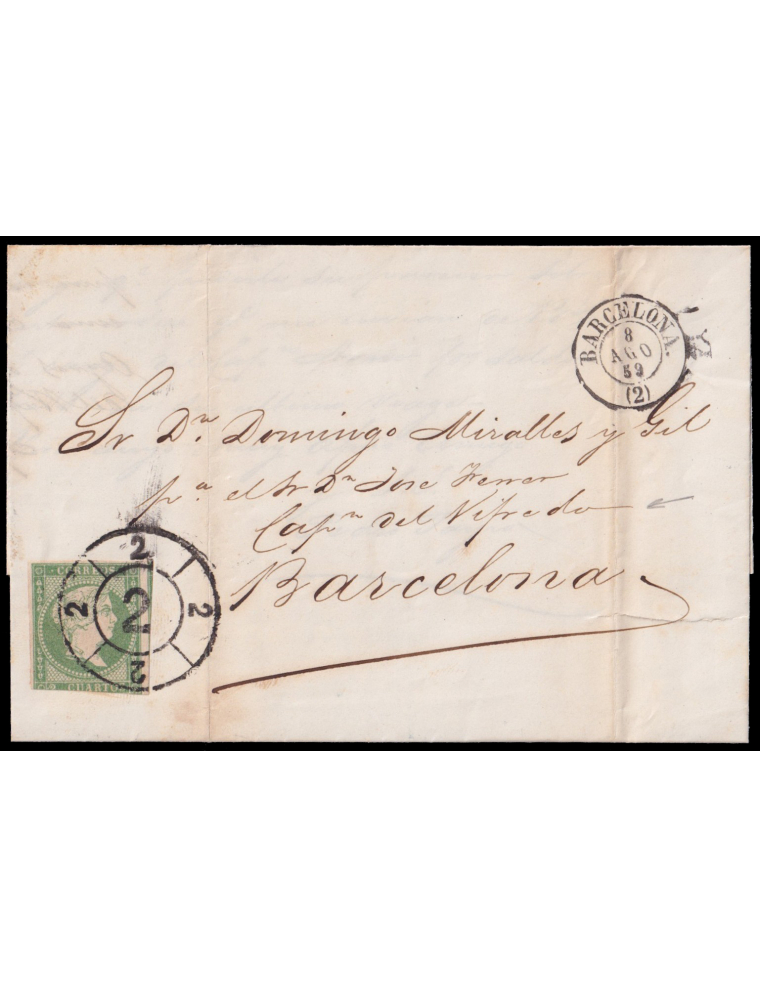 BARCELONA.
8
AGO
59
(2)
Sr Dn. Domingo Miralles y Gil
pa el Sr Dn Jose Ferrer
Capn del Vifredo
Barcelona
CORREOS
CUARTOS
2
2
2
2
2